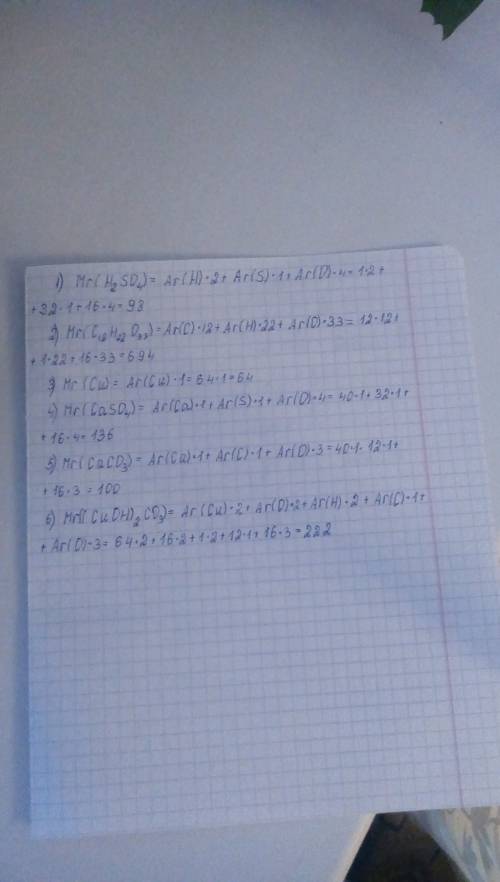 1) Mr(H₂SO₄)= Ar(H)·2+ Ar(S)·1+Ar(O)·4=1·2+
+32·1+16·4=98
2) Mr(C₁₂H₂₂O₃₃)=Ar(C)·12+Ar(H)·22+Ar(O)·33=12·12+
+1·22+16·33=694
3) Mr(Cu)= Ar(Cu)·1=64·1=64
4) Mr(CaSO₄)= Ar(Ca)·1+Ar(S)·1+Ar(O)·4=40·1+32·1+
+16·4=136
5) Mr(CaCO₃)= Ar(Ca)·1+Ar(C)·1+Ar(O)·3=40·1·12·1+
+16·3=100
6) Mr((CuOH)₂CO₃)= Ar(Cu)·2+Ar(O)·2+Ar(H)·2+Ar(C)·1+
+Ar(O)·3=64·2+16·2+1·2+12·1+16·3=222